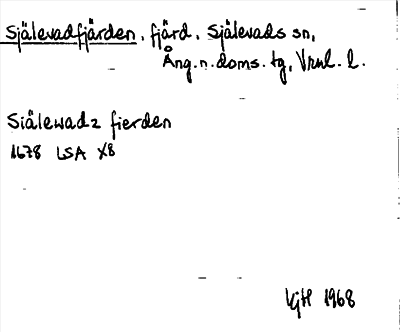 Själevadfjärden, fjärd, Själevads sn,
Ång. n. doms. tg, Vrnl. l.
Siälewadz fierden
1678 LSA X8
KjH 1968